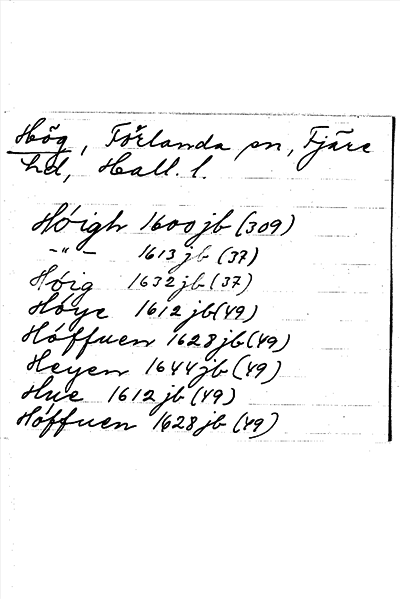 Hög, Förlanda sn, Fjäre
hd, Hall. l.
Höigh 1600 jb (309)
-"- 1613 jb (37)
Höig 1632 jb (37)
Höye 1612 jb (49)
Höffuen 1628 jb (49)
Heyen 1644 jb (49)
Hue 1612 jb (49)
Höffuen 1628 jb (49)